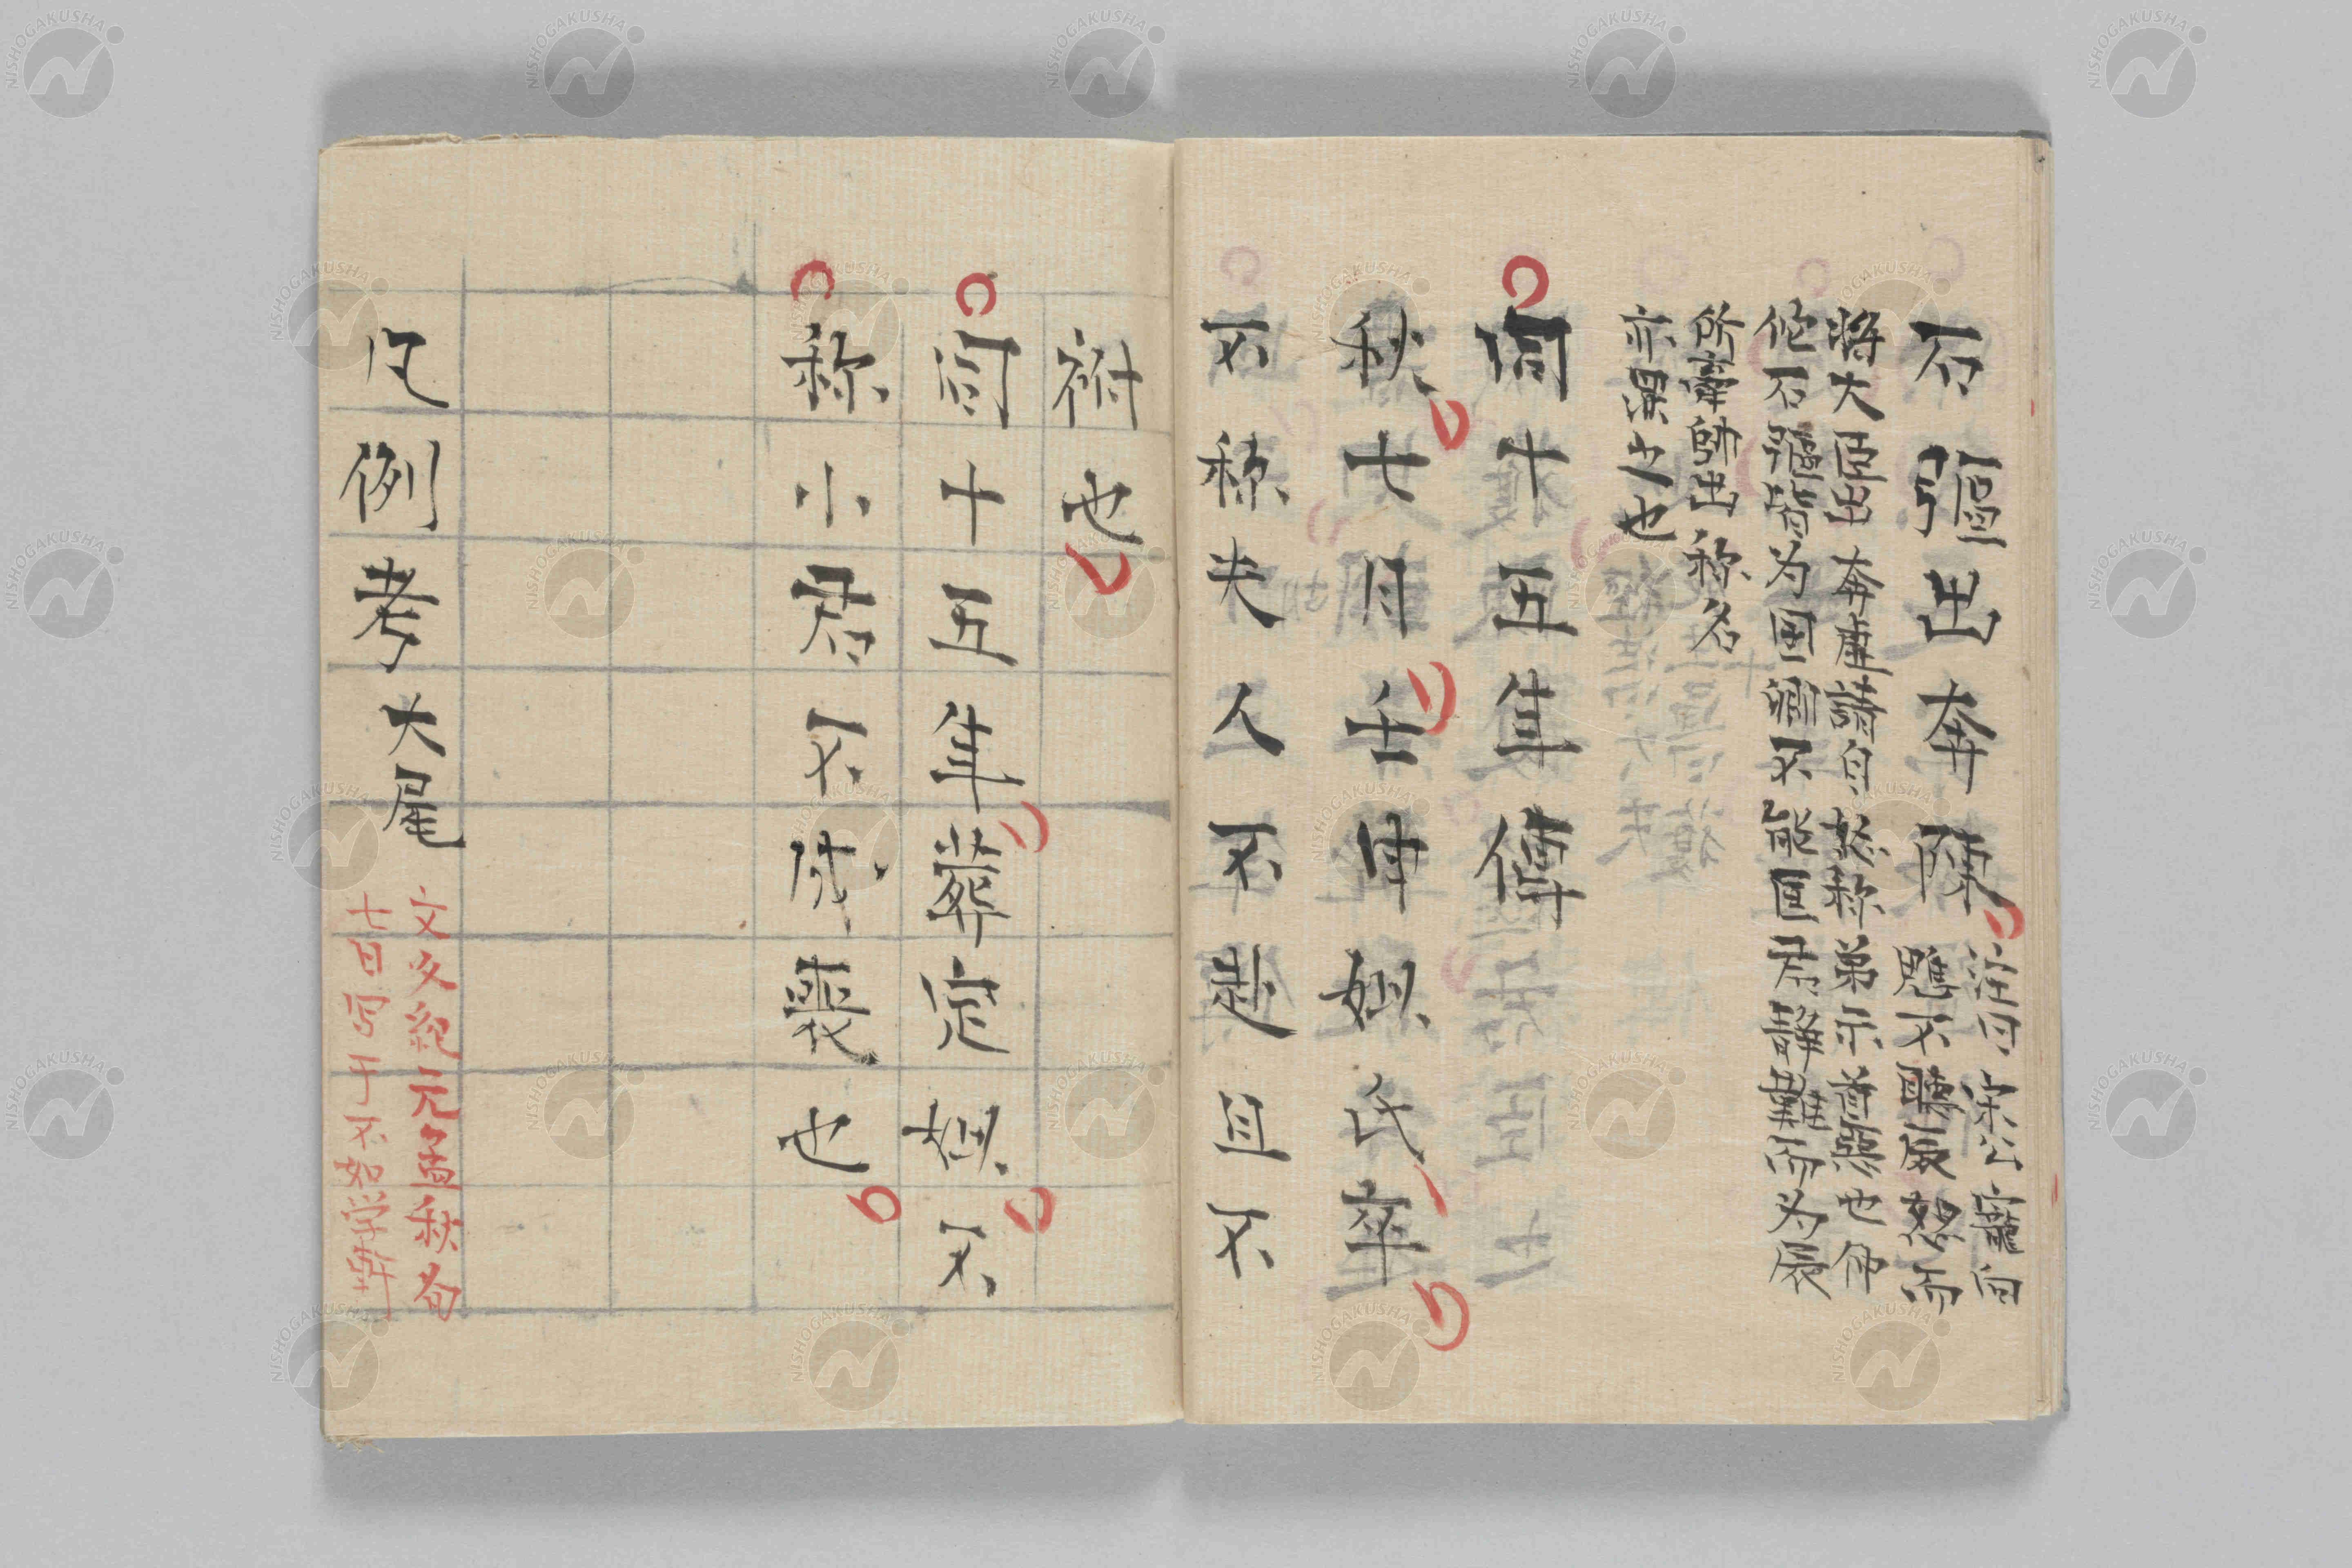 石彄出奔陳
注曰宋公寵向
魋不聽辰怒而
将大臣出奔虚請自忿称弟示首惡也仲
佗石彄皆为国卿不能匡君靜難而为辰
所牽帥出称名
亦罪之也
同十五年傳
秋七月壬申姒氏卒
不称夫人不赴且不
祔也
同十五年葬定姒不
称小君不成喪也
凡例考大尾
文久紀元孟秋旬
七日写于不如学斎
NISHOGAKUSHA